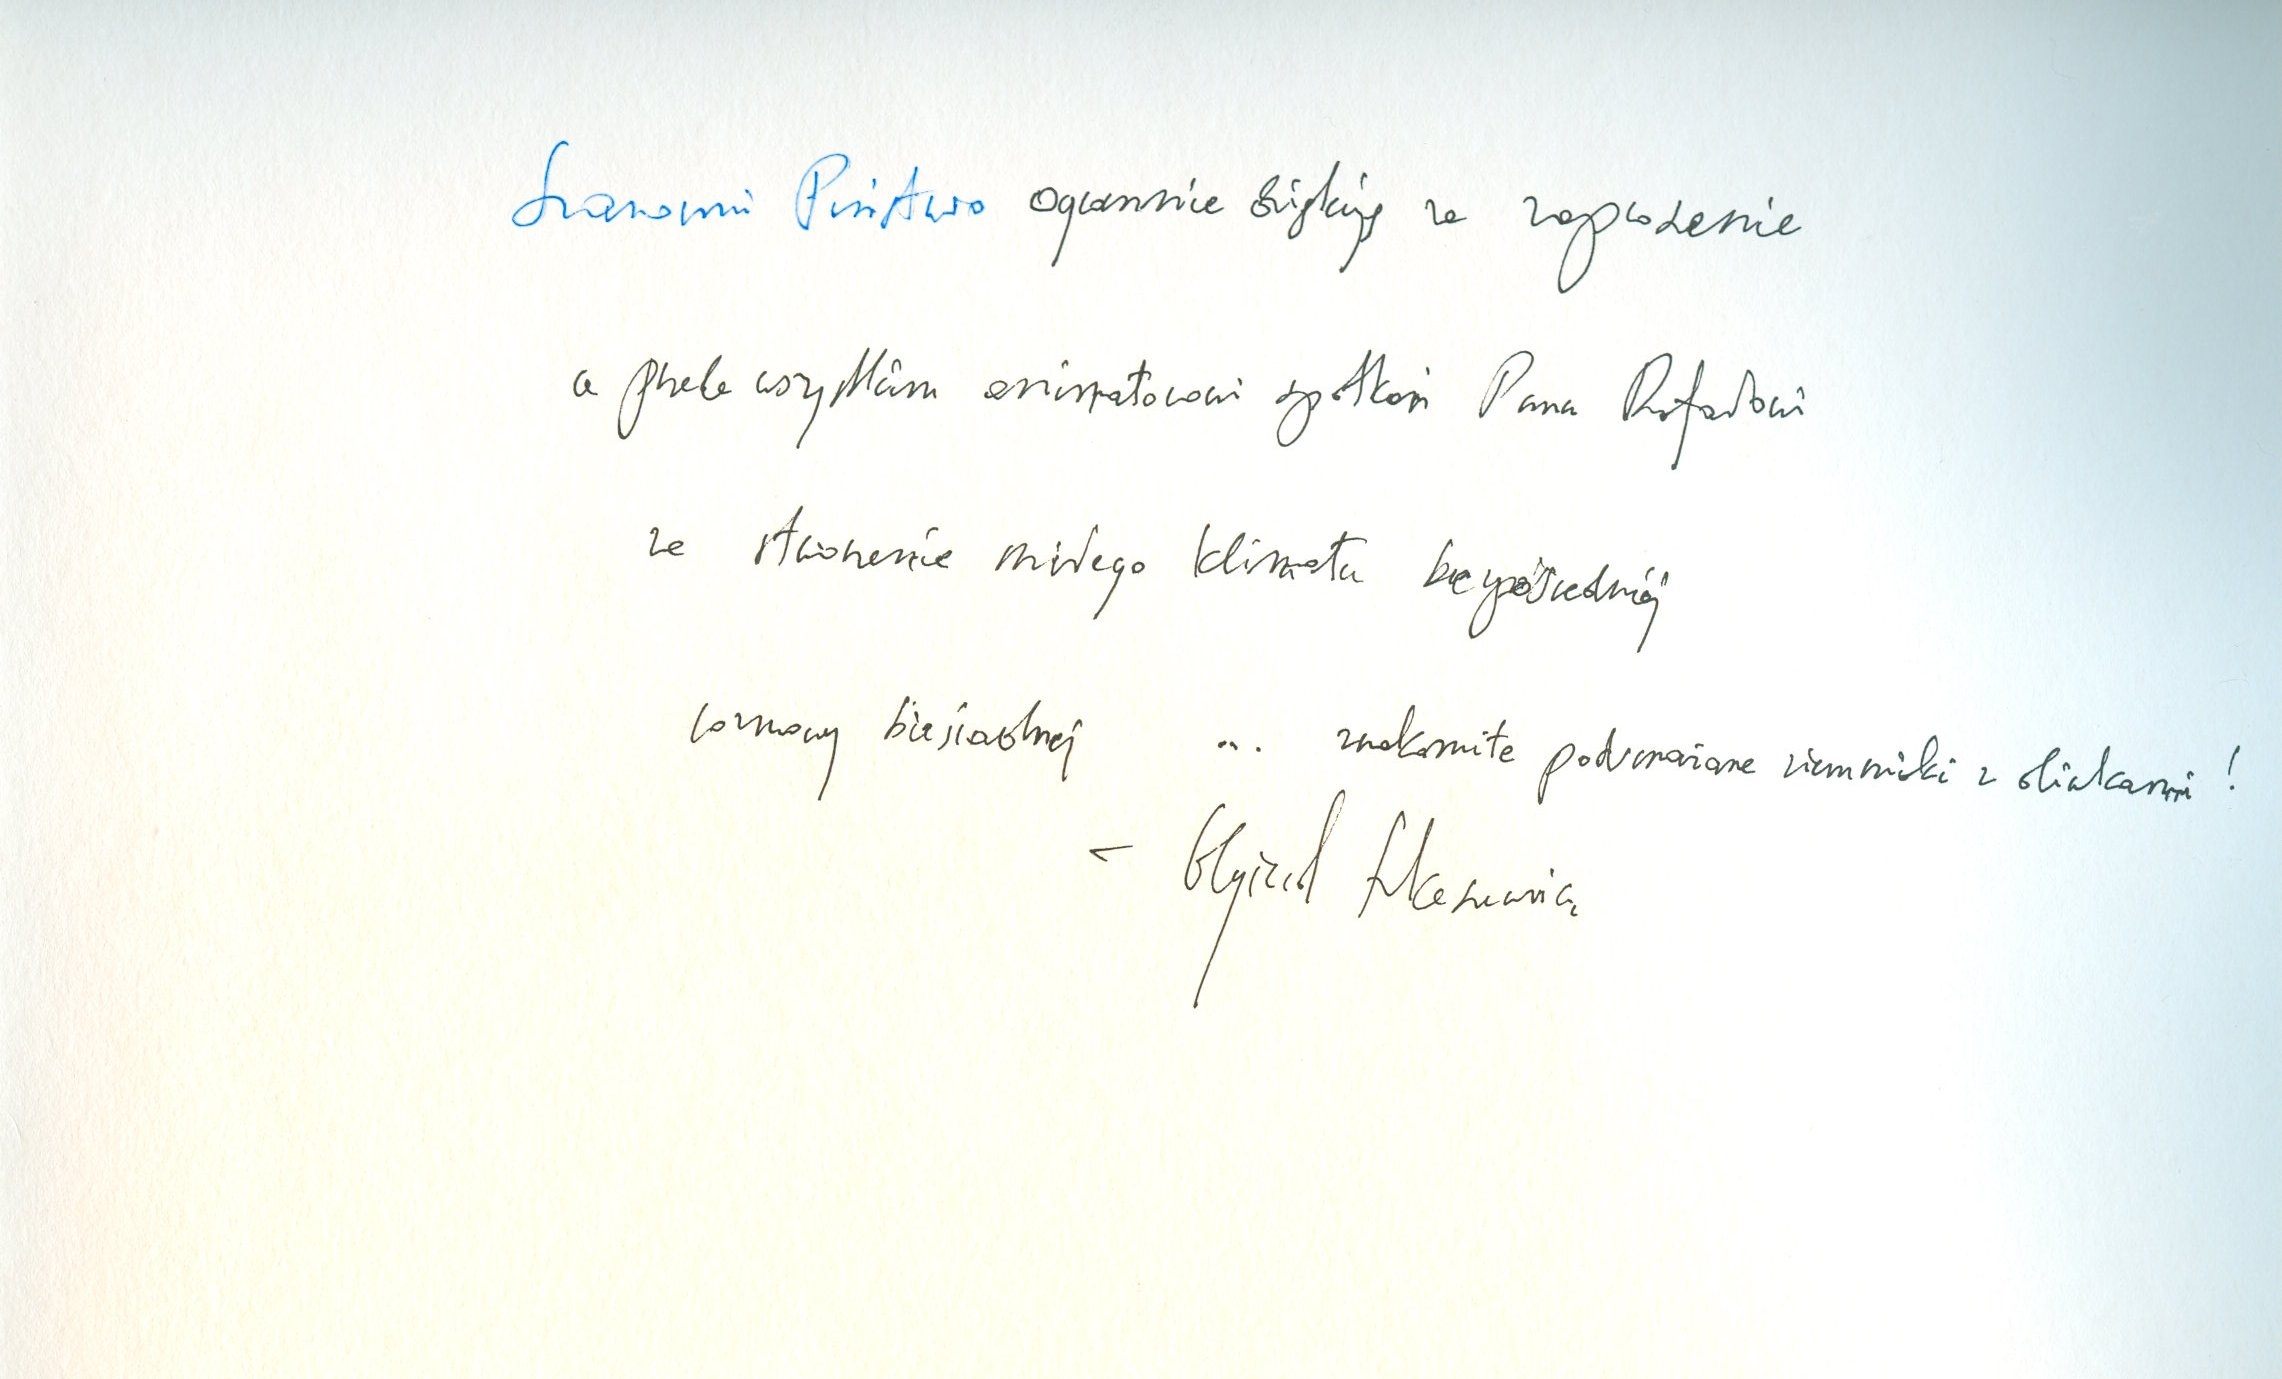 Szanowni Państwo ogromnie dziękuję za zaproszenie
a przede wszystkim animatorowi spotkań Panu Rafałowi
za stworzenie miłego klimatu bezpośredniej
rozmowy biesiadnej ... znakomite podsmażane ziemniaki z oliwkami!